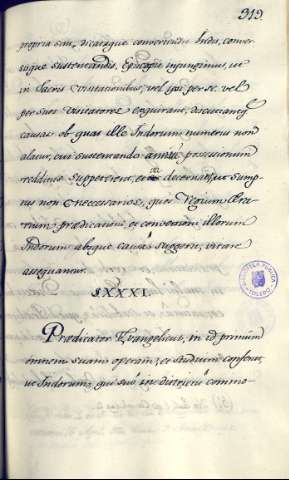 319.
propria sint, dicataque convertendis Indis, conver-
sisque sustentandis. Episcopis injungimus, ut
in Sacris Visitationibus, vel ipsi per se vel
per suos Visitatores exquirant, discutiantque
causas ob quas ille Indorum numerus non
alatur, cui sustentando annui possessionum
redditus suppeterent, et decernant, ut Sump-
tus non necessarios, quos Regium Era-
rium, prædicationi, et conversioni illorum
Indorum absque causa suggerit, vitare
assequantur.
§XXXI.
Prædicator Evangelicus, in id primùm
omnem suam operam, et studium conferat,
ut Indorum, qui suo in districtu commo-
BIBLIOTECA PUBLICA
TOLEDO